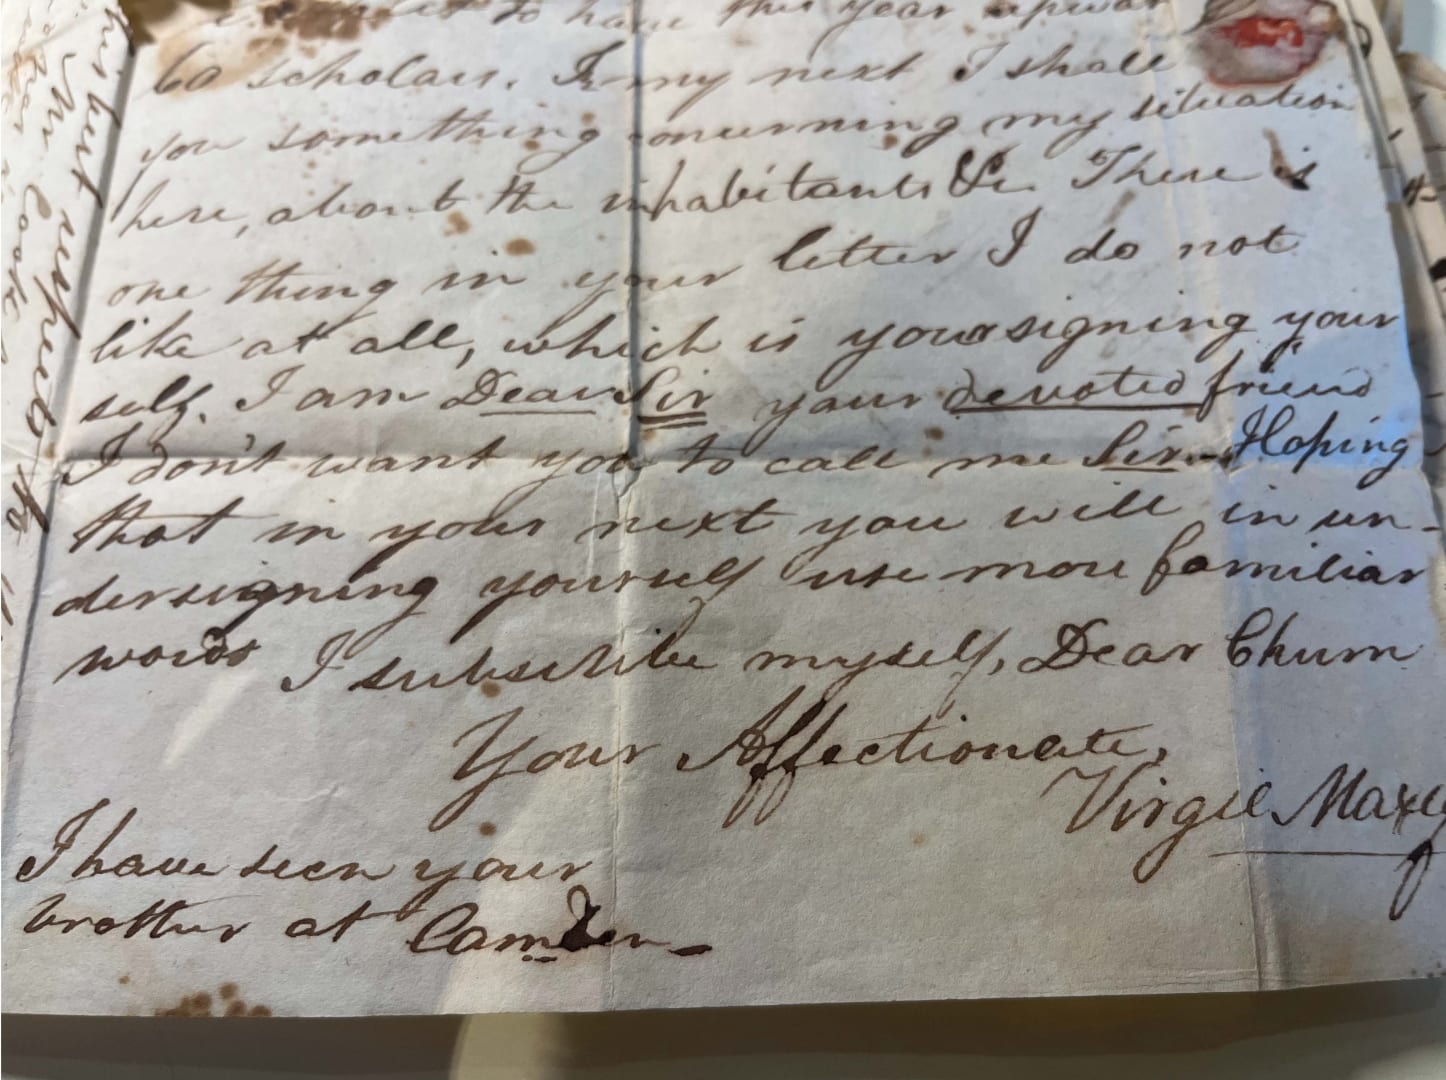 to have this year upwar
60 scholars. In my next I shall
you something concerning my situation
here, about the inhabitants &c. There is
one thing in your letter I do not
like at all, which is your signing your
self. I am Dear Sir your devoted friend
I don't want you to call me Sir. - Hoping
that in your next you will in un-
dersigning yourself use more familiar
words I subscribe myself, Dear Chum
Your Affectionate,
Virgil Maxcy
I have seen your
brother at Camden -
his best respects to
Mr Cooke